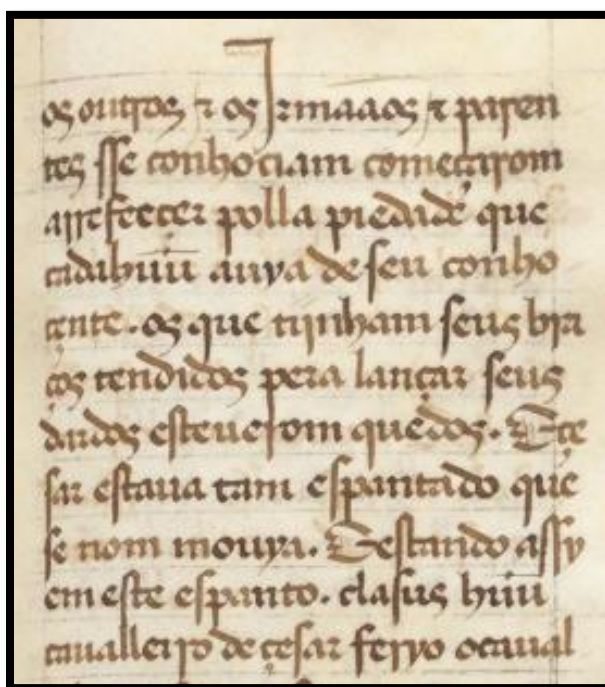 os outros ⁊ os Jrmaaos ⁊ paren
tes sse conhociam começarom
arrefeeçer polla piedade que
cadahũu auya de seu conho
çente. os que tijnham seus bra
ços tendidos pera lançar seus
dardos esteuerom quedos. E çe
sar estaua tam espantado que
se nom mouya. E estando assy
em este espanto. clasus hũu
caualleiro de çesar feryo o caual